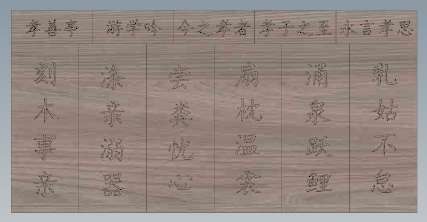 孝善亭
游学吟
今之孝者
孝子之至
永言孝思
刻木事亲
涤亲溺器
尝粪忧心
扇枕温衾
涌泉跃鲤
乳姑不怠